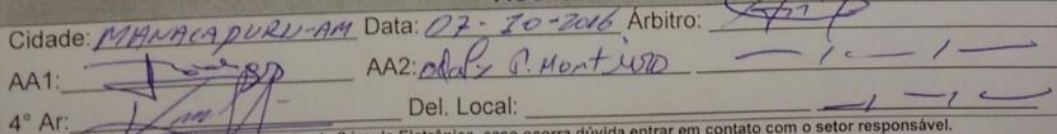 Cidade: MANACAPURU-AM Data: 07-10-2016 Árbitro:
AA1: AA2: P. Monteiro
4° Ar: Del. Local:
Eletrônica, caso ocorra dúvida entrar em contato com o setor responsável.